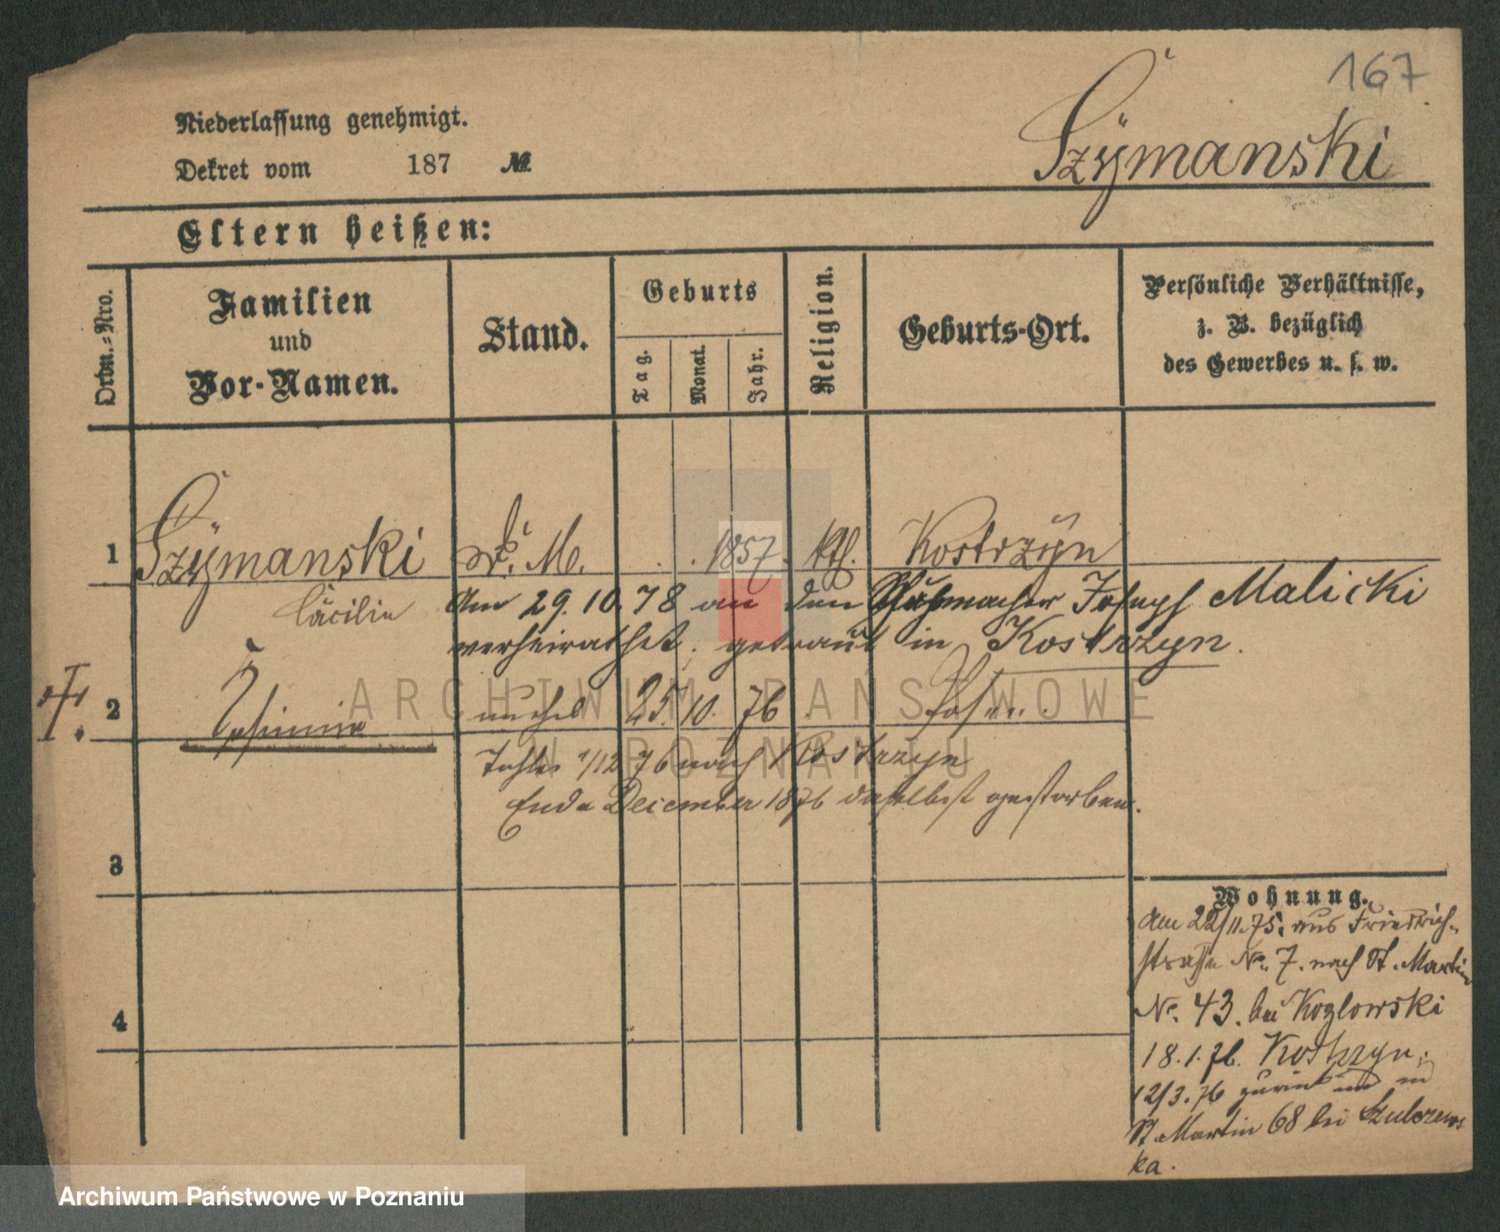 167
Niederlassung genehmigt.
Szÿmanski
Dekret vom 187 №
Eltern heißen:
Ordn.-Nro.
Familien
und
Vor-Namen.
Stand.
Geburts
Tag.
Monat.
Jahr.
Religion.
Geburts-Ort.
Persönliche Verhältnisse,
z. B. bezüglich
des Gewerbes u. s. w.
1 Szÿmanski M. 1857. kth. Kostrzÿn
Cäcilie Am 29.10.78 an den Schuhmacher Joseph Malicki
verheirathet; getraut in Kostrzyn.
2 unehel 25 10. 76 Posen
Tochter 1/12 76 nach Kostrzyn
Ende December 1876 daselbst gestorben.
3
4
Wohnung.
Am 22/11.75. aus Friedrich-
strasse No. 7. nach St. Martin
No. 43. bei Kozlowski
18.1.76. Kostrzyn.
12/3.76 zurück
St. Martin 68 bei Szulczews
ka.
ARCHIWUM PAŃSTWOWE
W POZNANIU
Archiwum Państwowe w Poznaniu